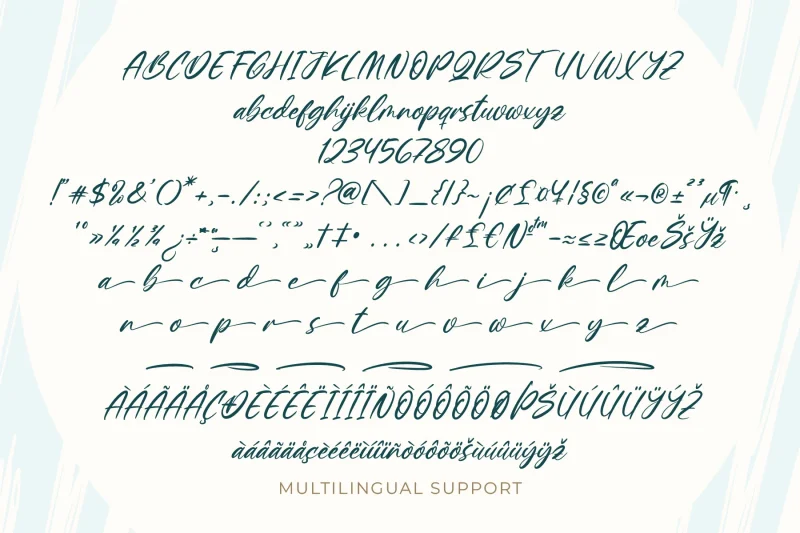 ABCDEFGHIJKLMNOPQRSTUVWXYZ
abcdefghijklmnopqrstuvwxyz
1234567890
!"#$%&'()*+,-./:;<=>?@[\]_{|}~¡¢£¤¥¦§©ª«¬®±²³µ¶·¸
¹º»¼½¾¿÷–—‘’‚“”„†‡•…‹›/ƒ£€№™−≈≤≥ŒœŠšŸž
a b c d e f g h i j k l m
n o p r s t u v w x y z
ÀÁÂÃÄÅÇÐÈÉÊËÌÍÎÏÑÒÓÔÕÖØÞŠÙÚÛÜŸÝŽ
àáâãäåçèéêëìíîïñòóôõöšùúûüýÿž
MULTILINGUAL SUPPORT